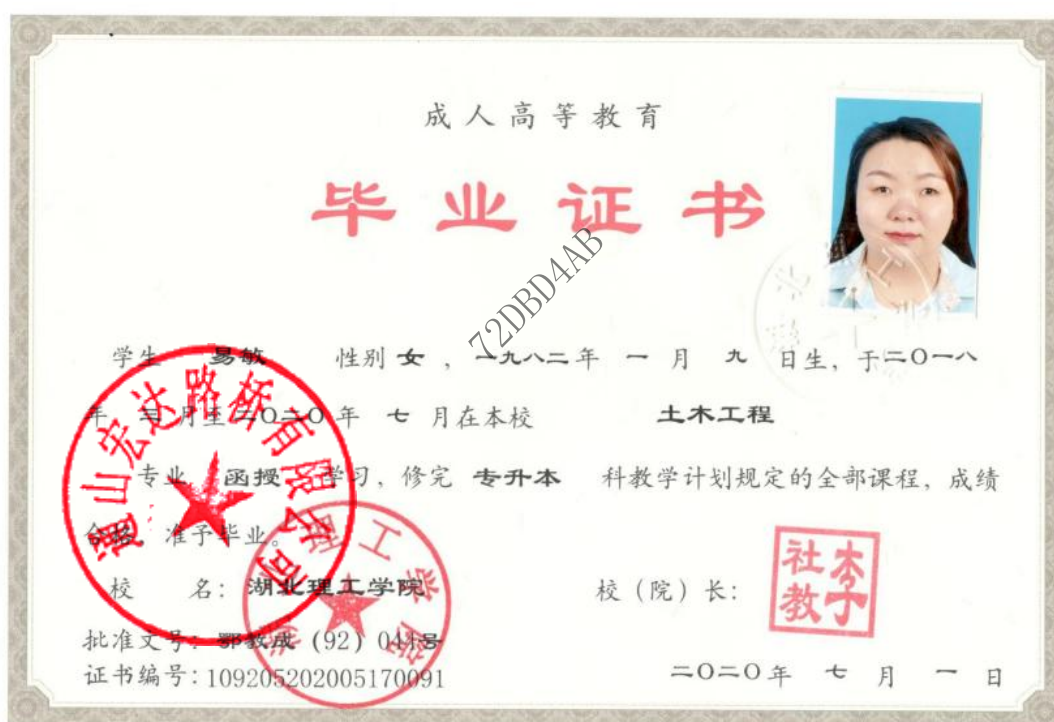 成人高等教育
毕业证书
72DBD4AB
学生 易敏 性别 女 ，一九八二年 一 月 九 日生，于二〇一八
年 三 月至二〇二〇年 七 月在本校 土木工程
专业 函授 学习，修完 专升本 科教学计划规定的全部课程，成绩
合格，准予毕业。
通山宏达路桥有限公司
校 名：湖北理工学院
校（院）长：
李社教
批准文号：鄂教成 (92) 041号
证书编号：109205202005170091
二〇二〇年 七 月 一 日